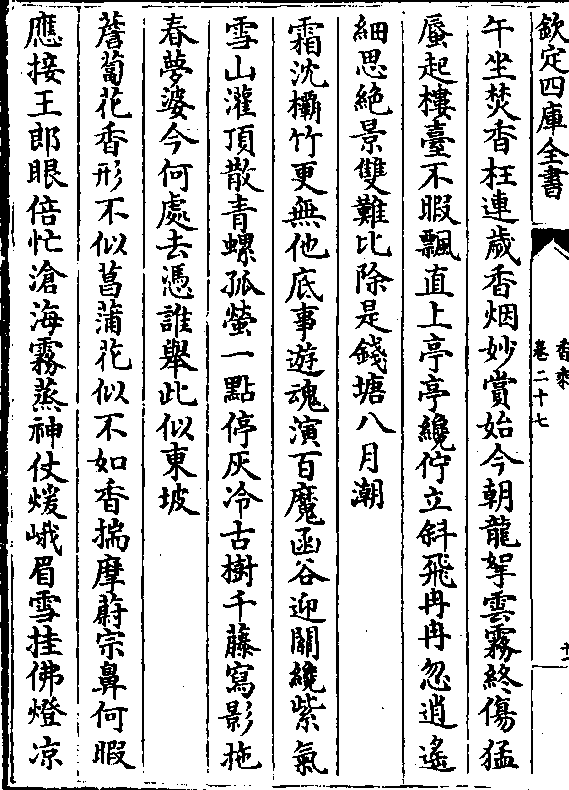 欽定四庫全書
香乘
卷二十七
十一
午坐焚香枉連歲香烟妙賞始今朝龍拏雲霧終傷猛
蜃起樓臺不暇飄直上亭亭纔佇立斜飛冉冉忽逍遙
細思絕景雙難比除是錢塘八月潮
霜沈欛竹更無他底事遊魂演百魔函谷迎關纔紫氣
雪山灌頂散青螺孤螢一點停灰冷古樹千藤寫影拖
春夢婆今何處去憑誰舉此似東坡
薝蔔花香形不似菖蒲花似不如香揣摩蔚宗鼻何暇
應接王郎眼倍忙滄海霧蒸神仗煖峨眉雪挂佛燈凉